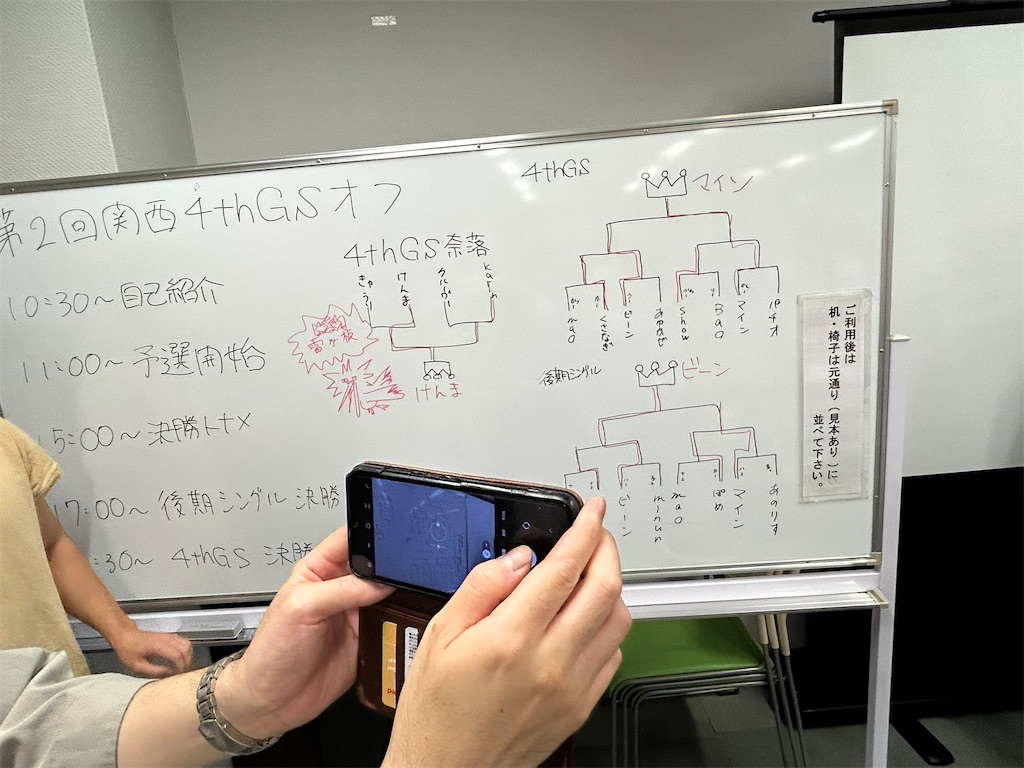 第2回関西4thGSオフ
10:30～自己紹介
11:00～予選開始
15:00～決勝トナメ
17:00～後期シングル 決勝
:30～ 4thGS 決勝
4thGS奈落
きゅうり
けんま
クルガリ
karin
雷が板
けんま
4thGS
マイン
mao
くさなぎ
ビーン
あゆかぜ
show
Bao
マイン
パチオ
後期シングル
ビーン
ビーン
minun
mao
ぽめ
マイン
あのりす
ご利用後は
机・椅子は元通り（見本あり）に
並べて下さい。